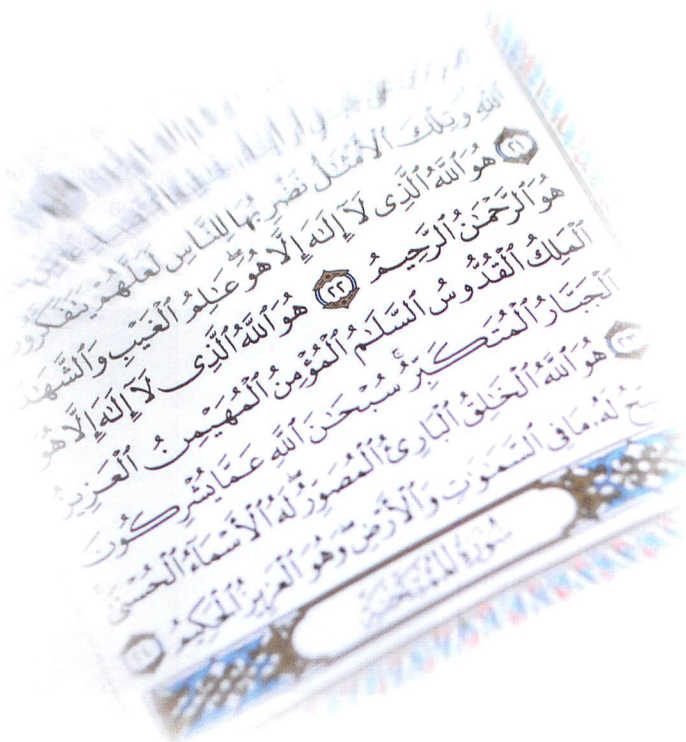 ٱللَّهِ وَتِلْكَ ٱلْأَمْثَٰلُ نَضْرِبُهَا لِلنَّاسِ لَعَلَّهُمْ يَتَفَكَّرُونَ
٢١ هُوَ ٱللَّهُ ٱلَّذِى لَآ إِلَٰهَ إِلَّا هُوَ ۖ عَٰلِمُ ٱلْغَيْبِ وَٱلشَّهَٰدَ
هُوَ ٱلرَّحْمَٰنُ ٱلرَّحِيمُ ٢٢ هُوَ ٱللَّهُ ٱلَّذِى لَآ إِلَٰهَ إِلَّا هُوَ
ٱلْمَلِكُ ٱلْقُدُّوسُ ٱلسَّلَٰمُ ٱلْمُؤْمِنُ ٱلْمُهَيْمِنُ ٱلْعَزِيزُ
ٱلْجَبَّارُ ٱلْمُتَكَبِّرُ ۚ سُبْحَٰنَ ٱللَّهِ عَمَّا يُشْرِكُونَ
٢٣ هُوَ ٱللَّهُ ٱلْخَٰلِقُ ٱلْبَارِئُ ٱلْمُصَوِّرُ ۖ لَهُ ٱلْأَسْمَآءُ ٱلْحُسْنَىٰ
يُسَبِّحُ لَهُۥ مَا فِى ٱلسَّمَٰوَٰتِ وَٱلْأَرْضِ ۖ وَهُوَ ٱلْعَزِيزُ ٱلْحَكِيمُ ٢٤
سُورَةُ ٱلْمُمْتَحِنَةِ